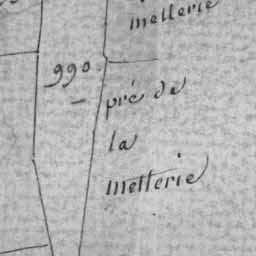 mellerie
990.
pré de
la
metterie